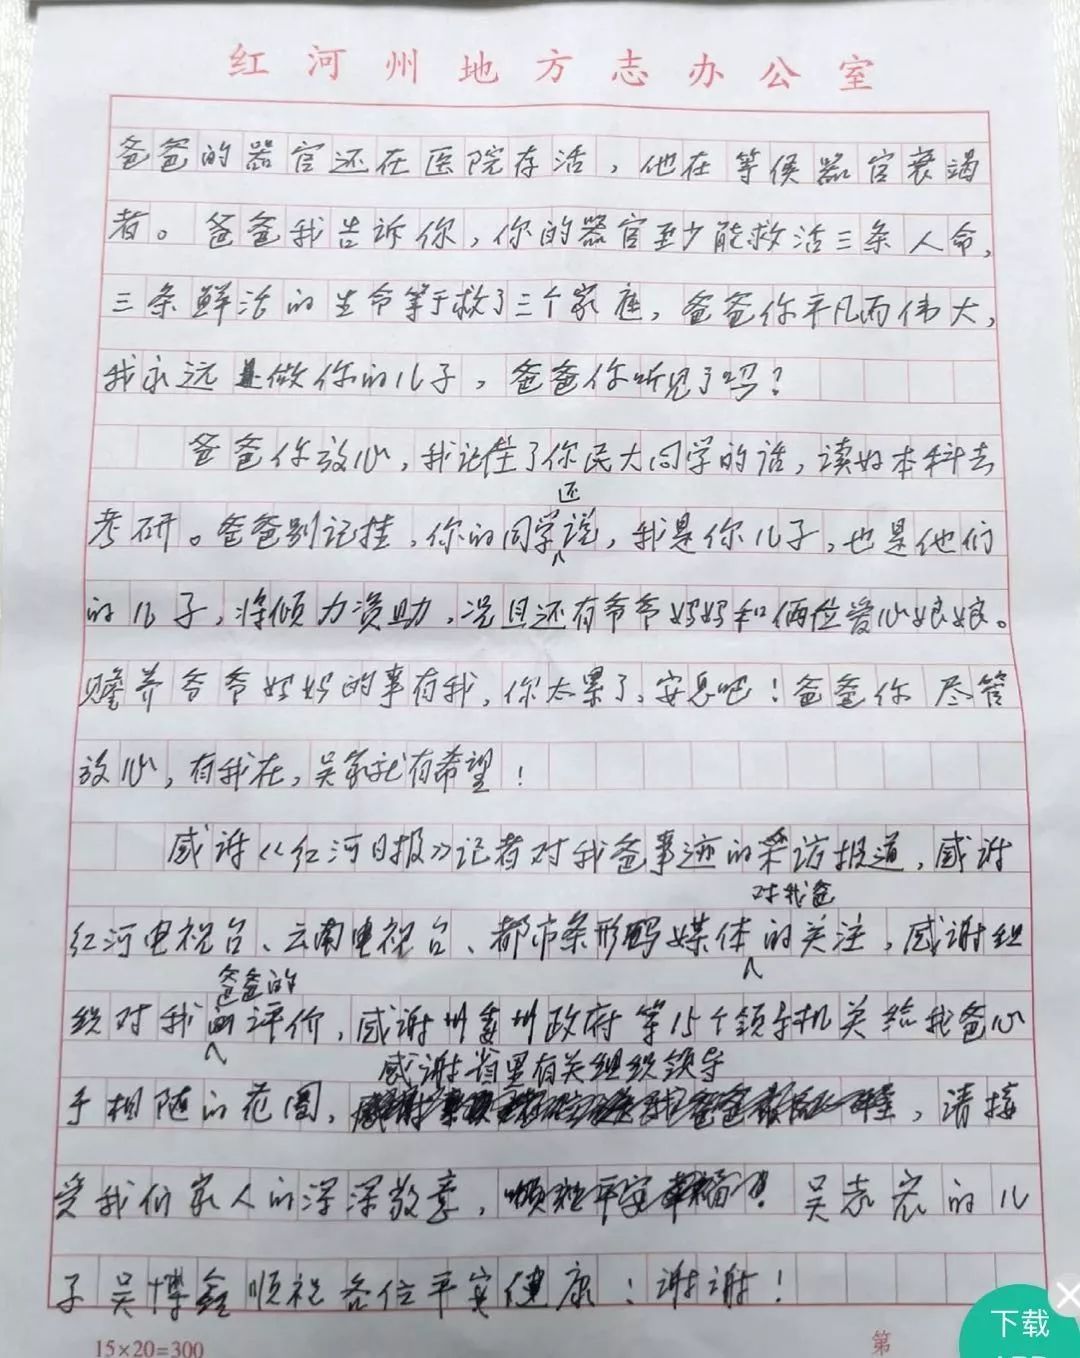 红河州地方志办公室
爸爸的器官还在医院存活，他在等候器官衰竭
者。爸爸我告诉你，你的器官至少能救活三条人命，
三条鲜活的生命等于救了三个家庭，爸爸你平凡而伟大，
我永远是做你的儿子，爸爸你听见了吗？
爸爸你放心，我记住了你民大同学的话，读好本科去
还
考研。爸爸别记挂，你的同学说，我是你儿子，也是他们
的儿子，将倾力资助，况且还有爷爷妈妈和俩位爱心娘娘。
赡养爷爷妈妈的事有我，你太累了，安息吧！爸爸你尽管
放心，有我在，吴家就有希望！
感谢《红河日报》记者对我爸事迹的采访报道，感谢
对我爸
红河电视台、云南电视台、都市条形码媒体的关注，感谢组
爸爸的
织对我评价，感谢州委州政府等15个领导机关给我爸心
感谢省里有关组织领导
手相随的花圈，，请接
受我们家人的深深敬意，吴志宏的儿
子吴博鑫顺祝各位平安健康！谢谢！
15×20=300
第
下载